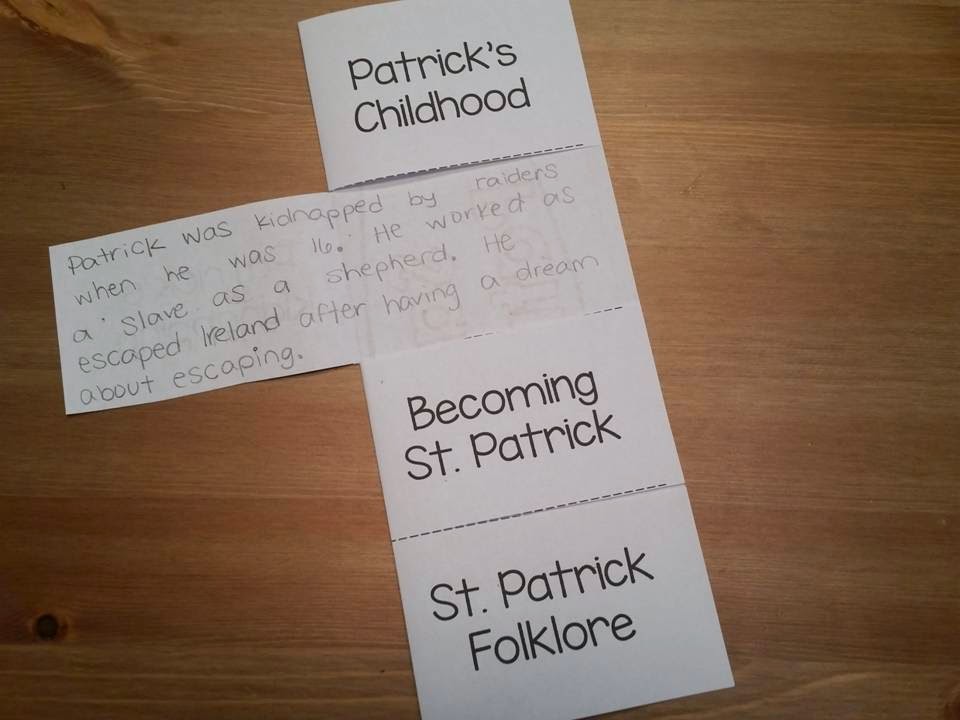 Patrick's
Childhood
Patrick was kidnapped by raiders
when he was 16. He worked as
a slave as a shepherd. He
escaped Ireland after having a dream
about escaping.
Becoming
St. Patrick
St. Patrick
Folklore